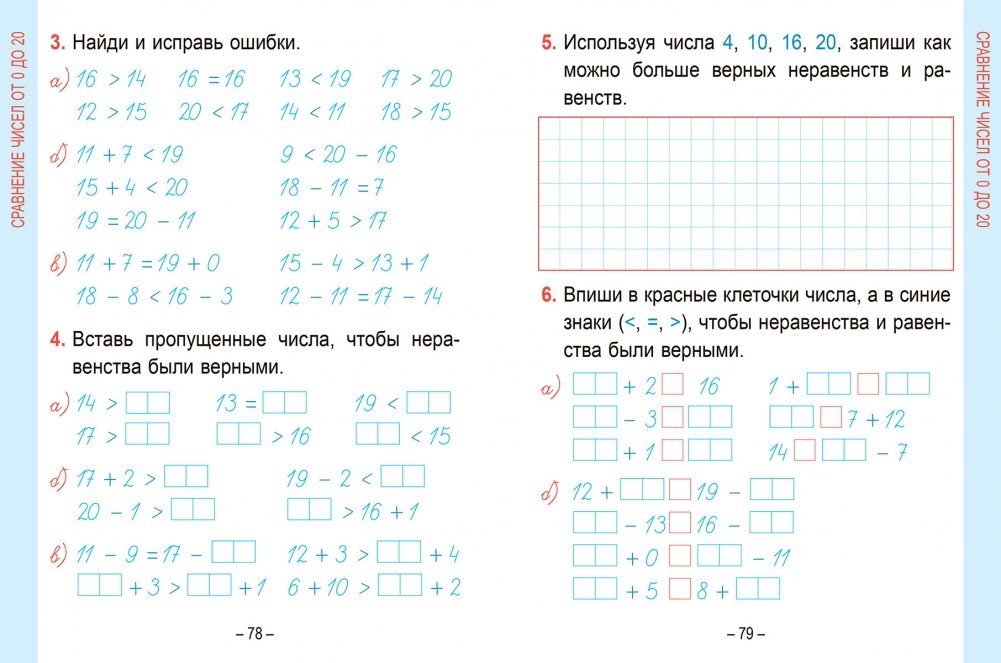 СРАВНЕНИЕ ЧИСЕЛ ОТ 0 ДО 20
3. Найди и исправь ошибки.
а) 16 > 14 16 = 16 13 < 19 17 > 20
12 > 15 20 < 17 14 < 11 18 > 15
б) 11 + 7 < 19 9 < 20 - 16
15 + 4 < 20 18 - 11 = 7
19 = 20 - 11 12 + 5 > 17
в) 11 + 7 = 19 + 0 15 - 4 > 13 + 1
18 - 8 < 16 - 3 12 - 11 = 17 - 14
4. Вставь пропущенные числа, чтобы нера-
венства были верными.
а) 14 > 13 = 19 <
17 > > 16 < 15
б) 17 + 2 > 19 - 2 <
20 - 1 > > 16 + 1
в) 11 - 9 = 17 - 12 + 3 > + 4
+ 3 > + 1 6 + 10 > + 2
– 78 –
5. Используя числа 4, 10, 16, 20, запиши как
можно больше верных неравенств и ра-
венств.
6. Впиши в красные клеточки числа, а в синие
знаки (<, =, >), чтобы неравенства и равен-
ства были верными.
а) + 2 16 1 +
- 3 7 + 12
+ 1 14 - 7
б) 12 + 19 -
- 13 16 -
+ 0 - 11
+ 5 8 +
– 79 –
СРАВНЕНИЕ ЧИСЕЛ ОТ 0 ДО 20